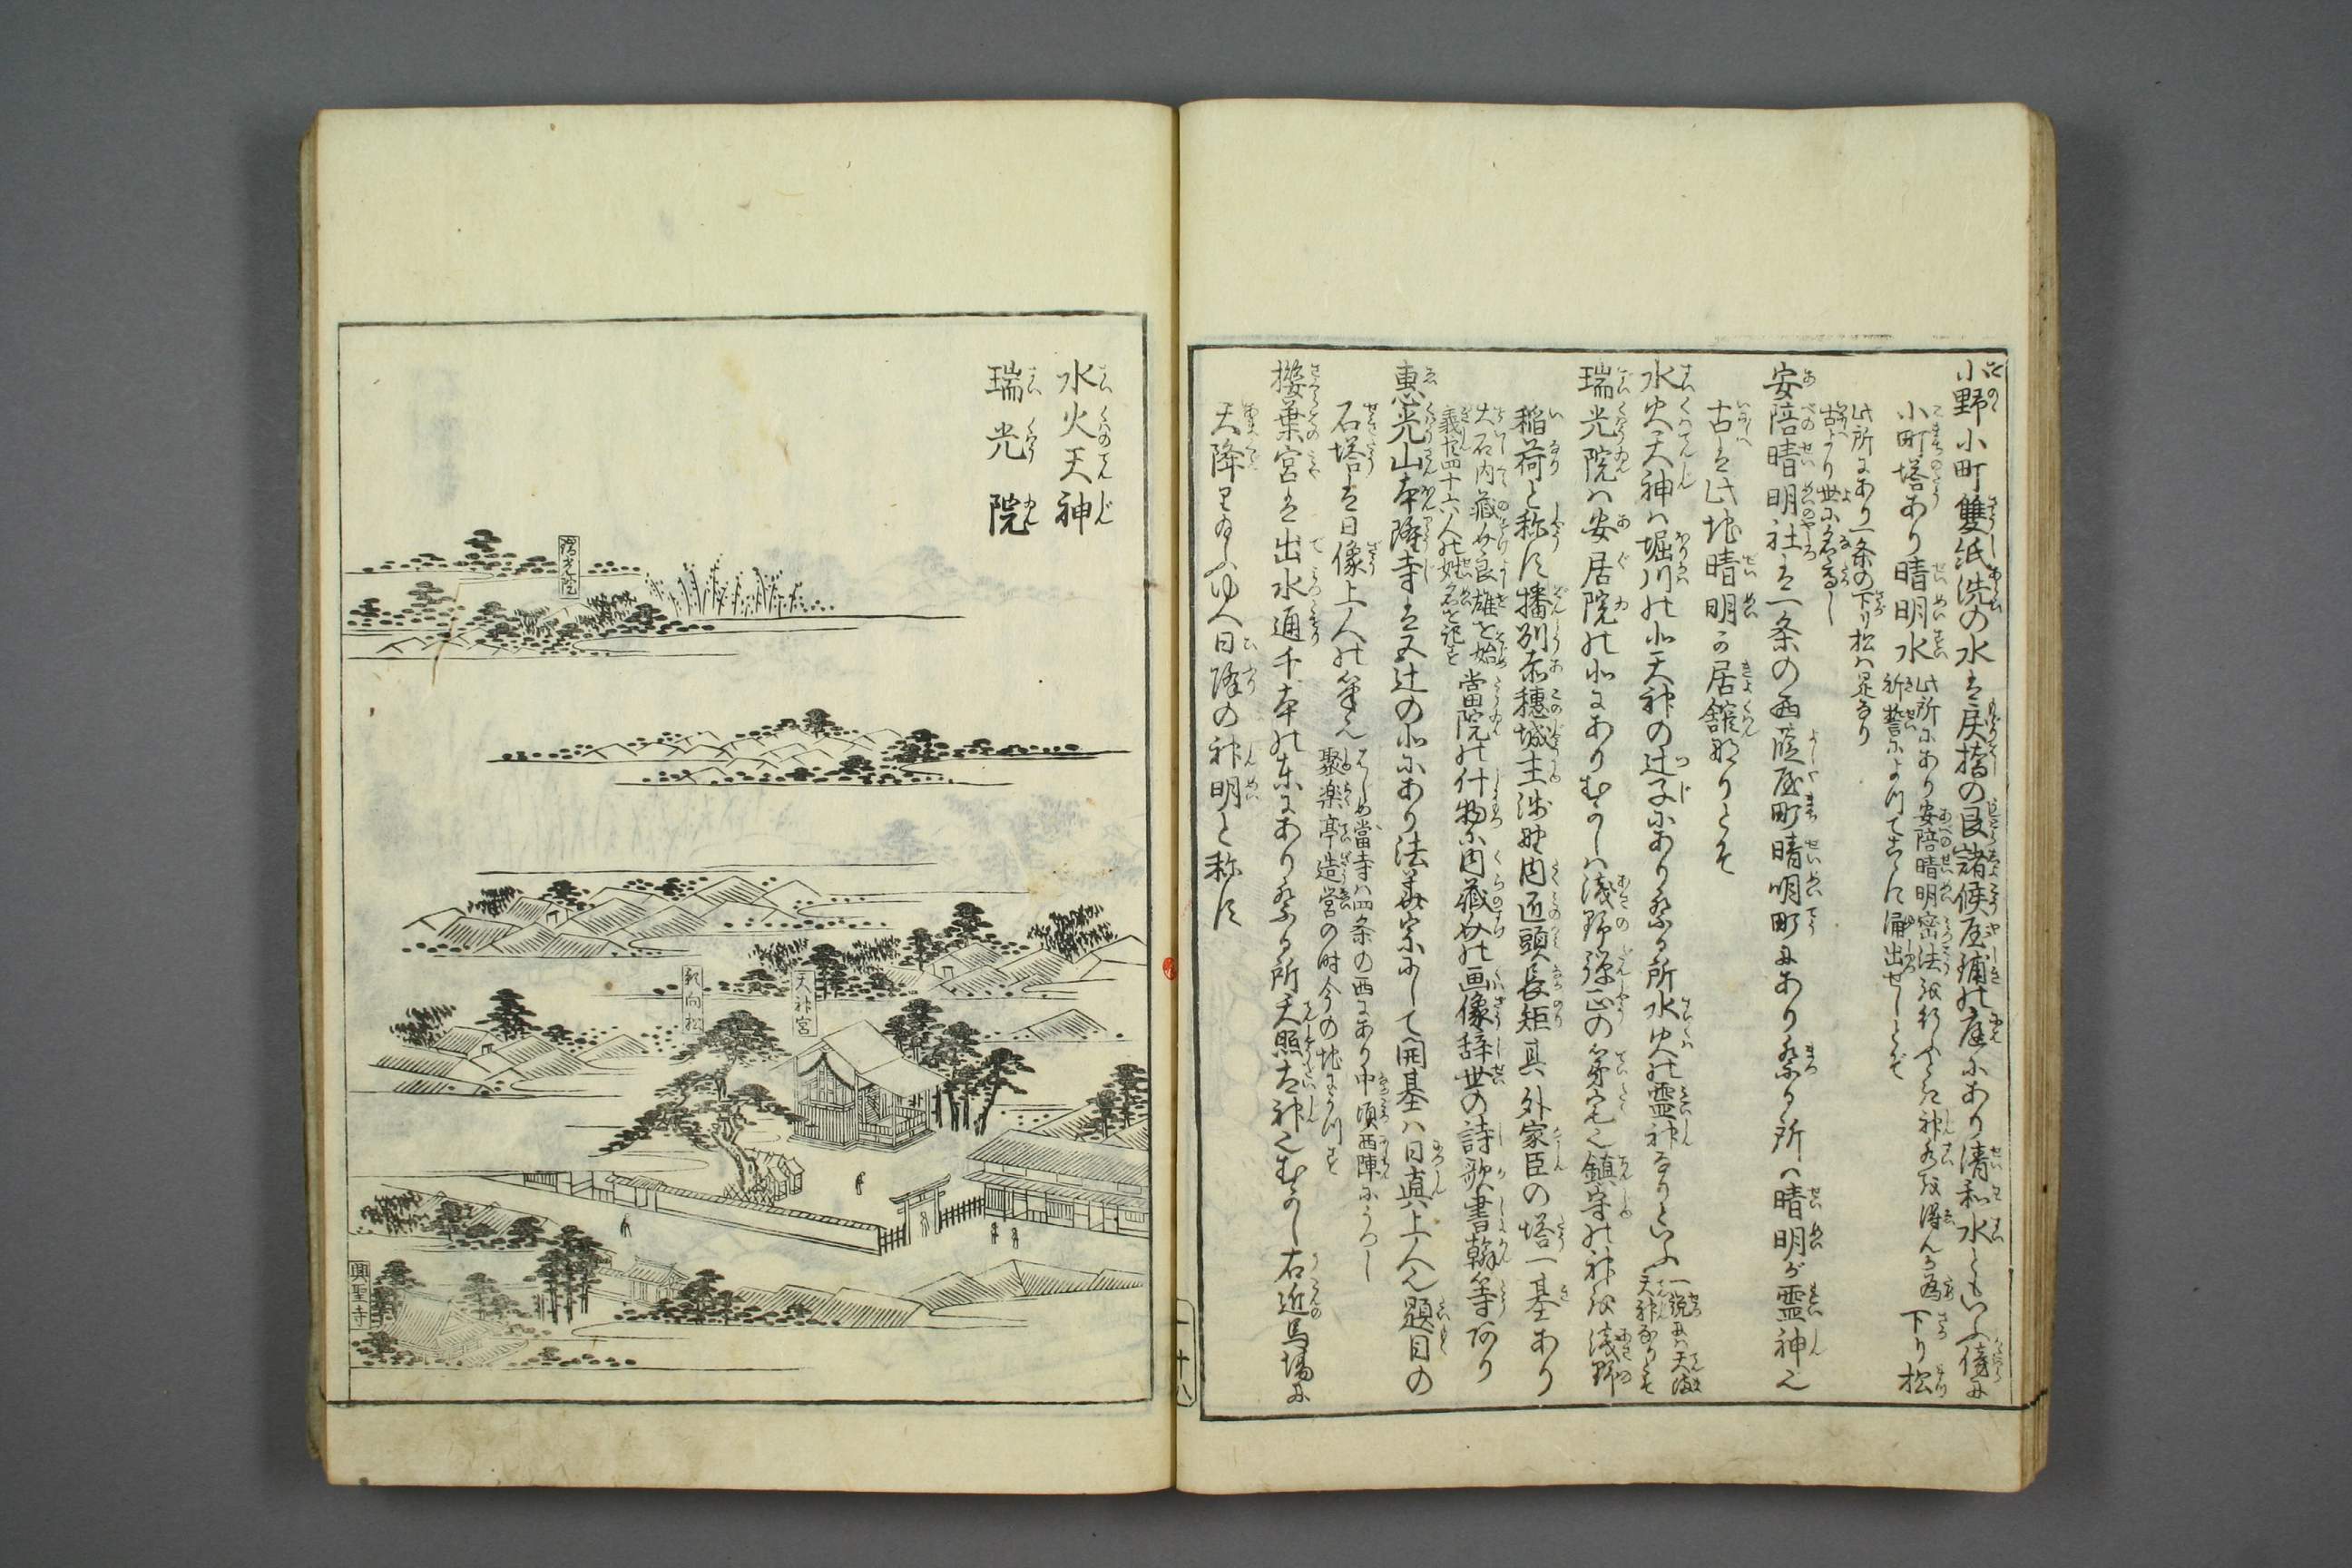 小野小町雙紙洗の水は戻橋の艮諸侯屋鋪の庭にあり清和水ともいふ傍に
小町塔あり晴明水
此所にあり安陪晴明密法を行ふとき神水を得んが為
祈誓によつてこゝに涌出せしとぞ
下り松
此所にあり一条の下り松は是なり
古より世に名高し
安陪晴明社は一条の西葭屋町晴明町にあり祭る所は晴明が霊神也
古は此地晴明の居舘なりとぞ
水火天神は堀川の北天神の辻子にあり祭る所水火の霊神なりといふ
一説には天満
天神なりとぞ
瑞光院は安居院の北にありむかしは浅野弾正の第宅也鎮守の神を浅野
稲荷と称す播州赤穂城主浅野内匠頭長矩其外家臣の塔一基あり
大石内蔵介良雄を始
義士四十六人の姓名を記す
當院の什物に内蔵介の画像辞世の詩歌書翰等あり
恵光山本隆寺は五辻の北にあり法華宗にして開基は日真上人也題目の
石塔は日像上人の筆也
はじめ當寺は四条の西にあり中頃西陣にうつし
聚楽亭造営の時今の地にうつす
櫻葉宮は出水通千本の東にあり祭る所天照太神也むかし右近馬場に
天降り給ふゆへ日降の神明と称す
二十八
水火天神
瑞光院
瑞光院
天神宮
影向松
興聖寺